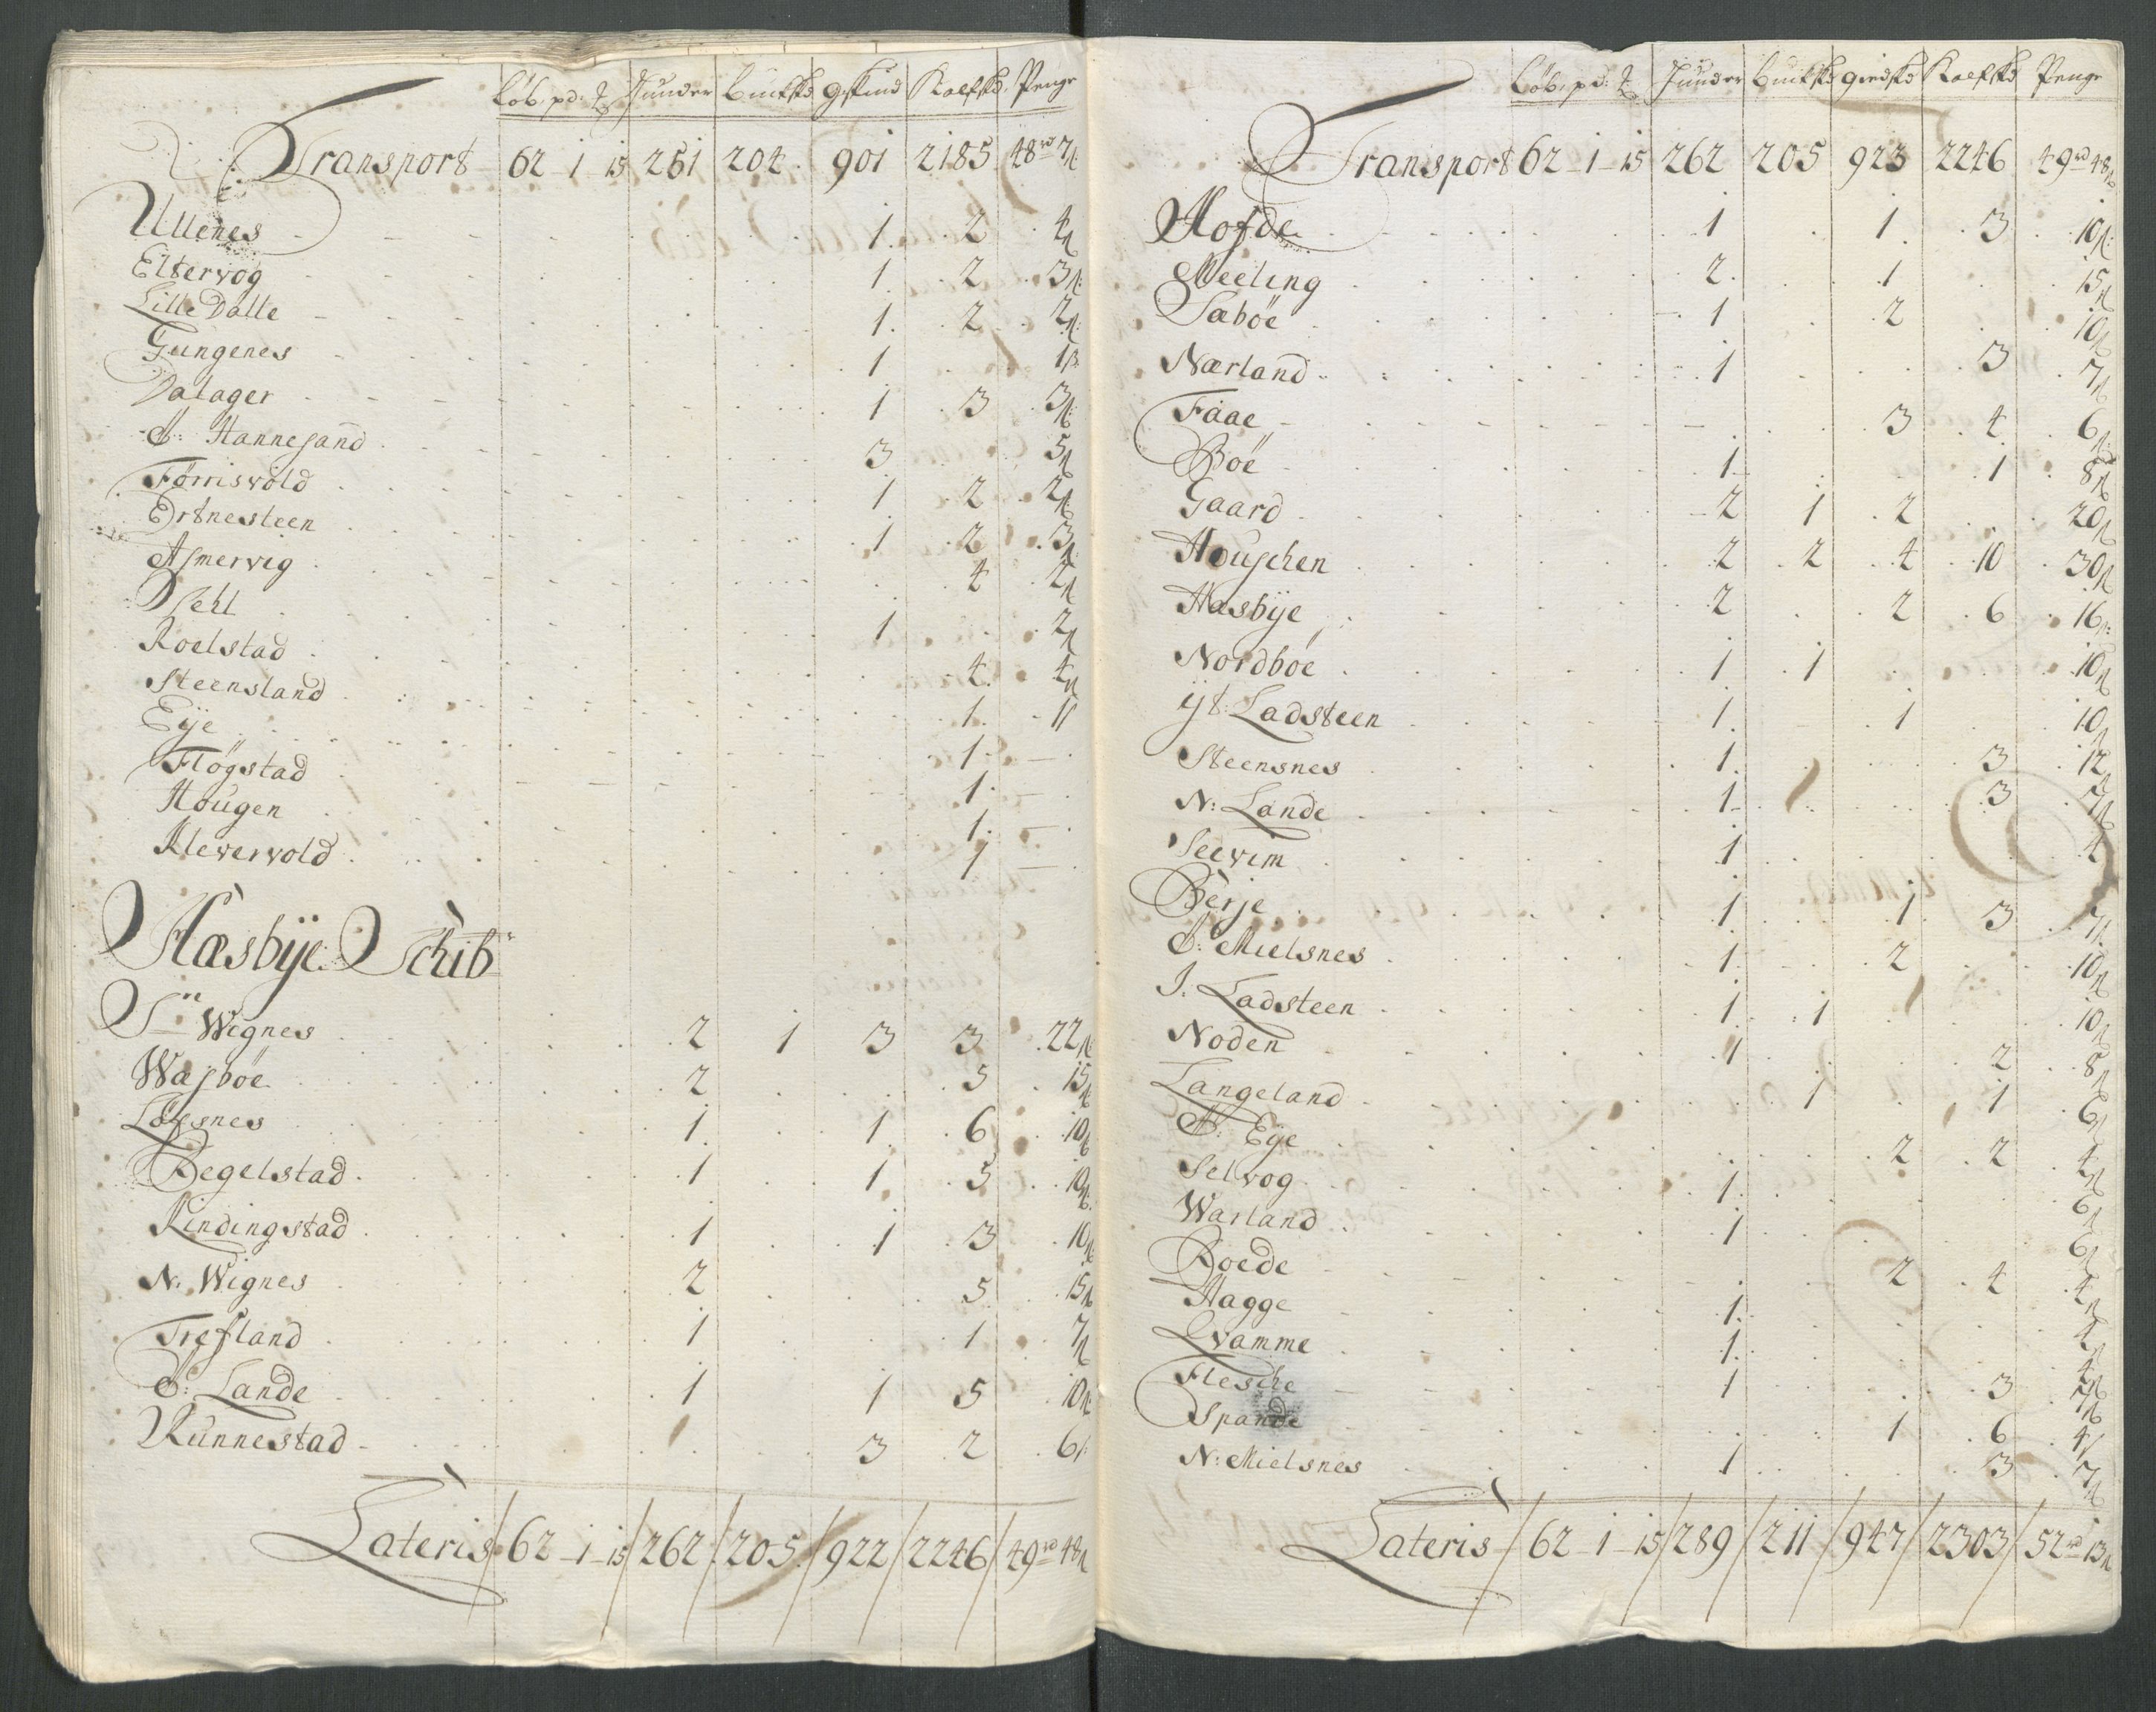 Løb: pd: ℔ Huuder Buckskd gskind Kalfskd Penge
Transport 62 - 1 - 15 251 204 901 2185 48rd 7ß
Ullenes 1 2 4ß
Eltervog 1 2 3ß
Lille Dalle 1 2 2ß
Gungenes 1 1ß
Dalager 1 3 3ß
Ø: Hannesand 3 5ß
Førrisvold 1 2 2ß
Ertnesteen 1 2 3ß
Asmervig 4 2ß
Sehl 1 2ß
Roelstad 4 4ß
Steensland 1 1ß
Eÿe 1 —
Fløgstad 1 —
Hougen 1 —
Klevervold 1 —
Hæsbÿe Schib
Sr Wignes 2 1 3 3 22ß
Wasböe 2 5 15ß
Løfsnes 1 1 6 10ß
Begelstad 1 1 5 10ß
Rindingstad 1 1 3 10ß
N. Wignes 2 5 15ß
Trefland 1 1 7ß
Ø: Lande 1 1 5 10ß
Runnestad 3 2 6ß
Lateris 62 - 1 - 15 262 205 922 2246 49rd 48ß
Løb: pd: ℔ Huuder Buckskd giedskd Kalfskd Penge
Transport 62 - 1 - 15 262 205 923 2246 49rd 48ß
Hofde 1 1 3 10ß
Meeling 2 1 15ß
Sæböe 1 2 10ß
Nærland 1 3 7ß
Faae 3 4 6ß
Böe 1 1 8ß
Gaard 2 1 2 20ß
Houschen 2 2 4 10 30ß
Hæsbÿe 2 2 6 16ß
Nordböe 1 1 10ß
ÿt: Ladsteen 1 1 10ß
Steensnes 1 3 12ß
N: Lande 1 3 7ß
Seevim 1 4
Berje 1 1 3 7ß
Ø: Mielsnes 1 2 10ß
J. Ladsteen 1 1 10ß
Noden 1 2 8ß
Langeland 1 1 6ß
Ø: Eÿe 2 2 4ß
Selvog 1 6ß
Warland 1 6ß
Boede 2 4 4ß
Hagge 1 4ß
Qvamme 1 4ß
Flesche 1 3 7ß
Spande 1 6 4ß
N: Mielsnes 1 3 7ß
Lateris 62 - 1 - 15 289 211 947 2303 52rd 13ß